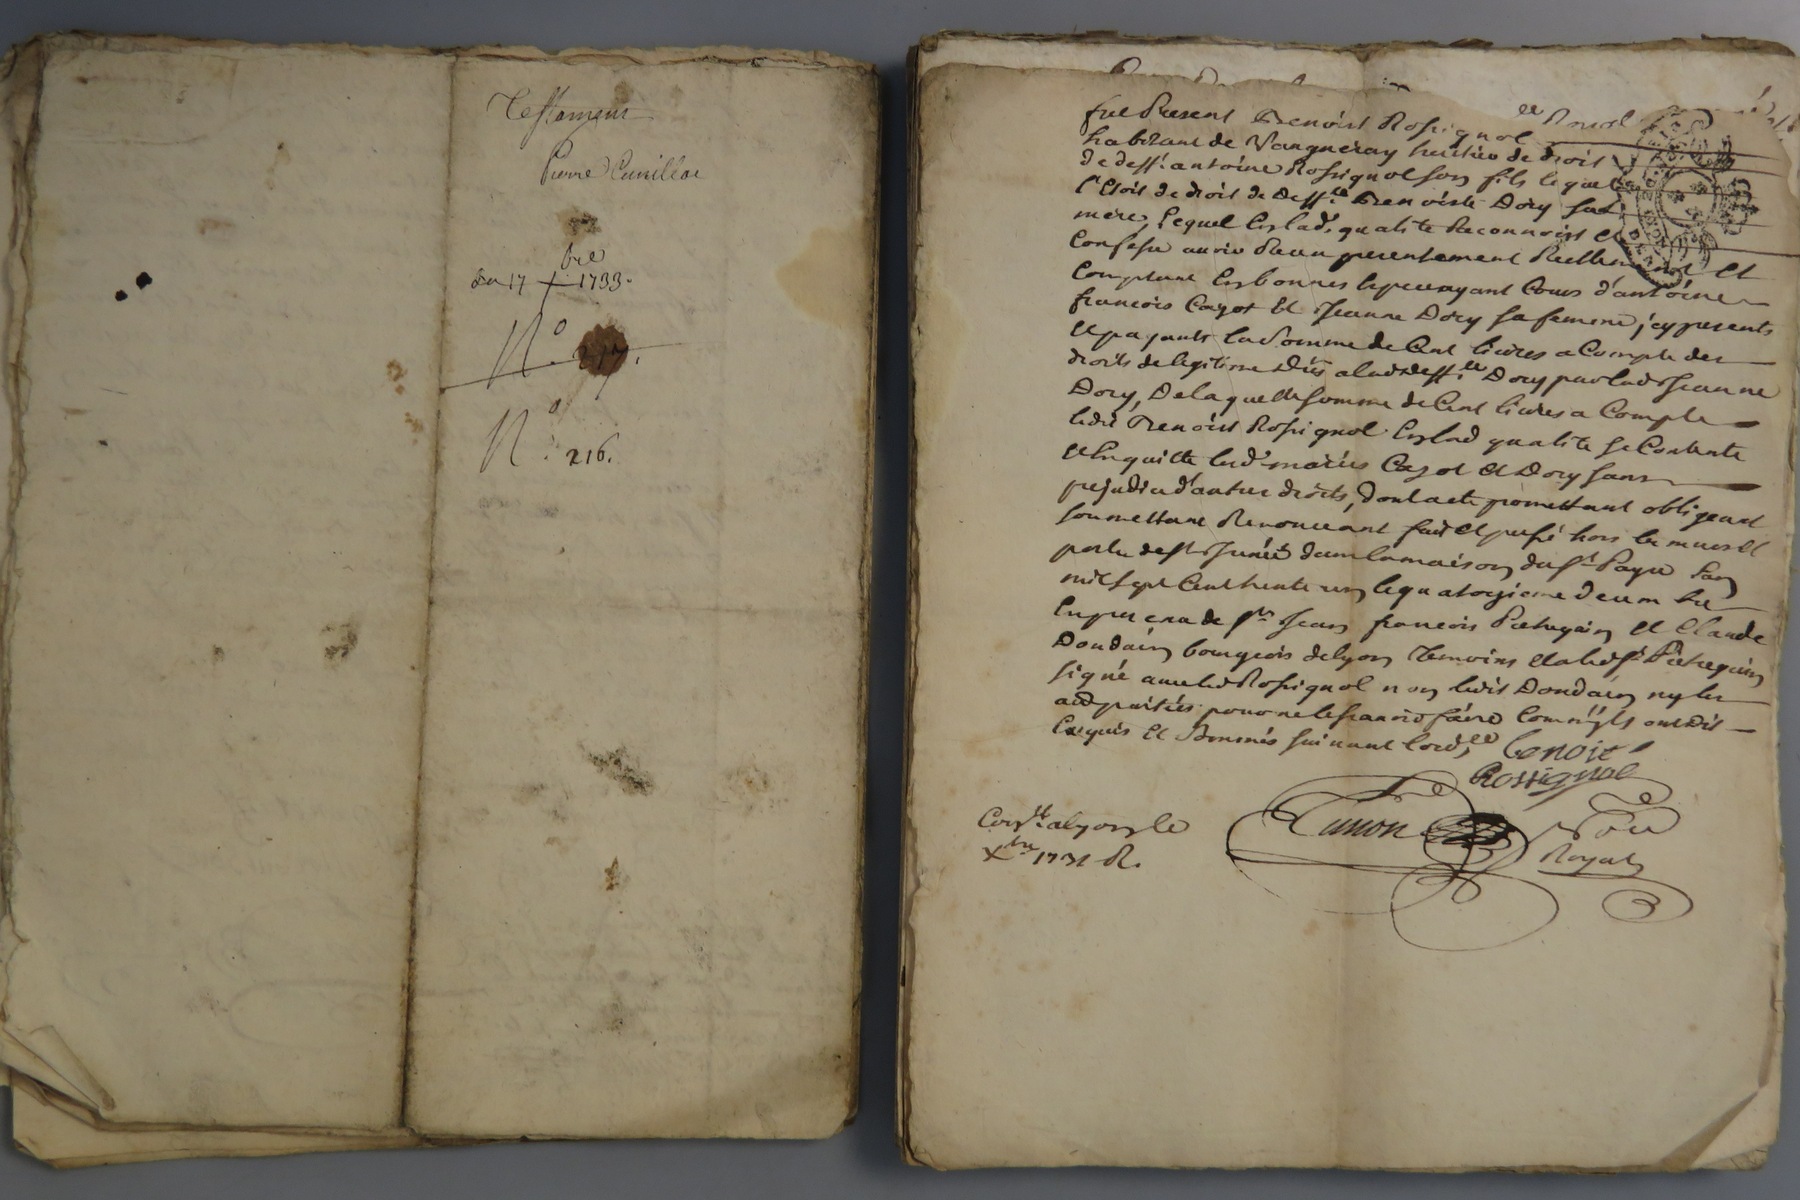 Testament
Pierre
bre
du 17 X 1733.
N.o 217.
N.o 216.
fut Present Benoist Rossignol
habitant de Vaugneray heritier de droit
de deff.t antoine Rossignol son fils lequel
l'Etoit de droit de deff.te Benoiste Dory sa
mere, Lequel Enlad. qualité Reconnoist et
Confesse avoir Receu presentement Reellement et
Comptant En bonnes Especes ayant Cours d'antoine
francois Cazot et Jeanne Dory sa femme, icy presents
et payants La Somme de Cent livres a Compte des
droits de legitime dûs a lad. deff.te Dory par lad. Jeanne
Dory, De laquelle somme de Cent livres a Compte
ledit Benoist Rossignol Enlad qualité se Contente
et En quitte lesd. mariés Cazot et Dory sans
prejudice d'autres droits, dont acte promettant obligeant
soumettant Renonceant fait et passé hors les murs et
porte de St. Irenée dans la maison du Sr. Page Lan
mil sept Cent trente un le quatorzieme decembre
En presence de Srs. Jean francois et Claude
Dondain bourgeois de lyon Temoins et a led. Sr.
signé avec led Rossignol non ledit Dondain ny les
aud parties pour ne le scavoir faire Comme ils ont dit
Enquis et Sommés suivant l'ord.ce benoit
Rossignol
Con.lé a lyon le
Xbre 1731 R.
Royal